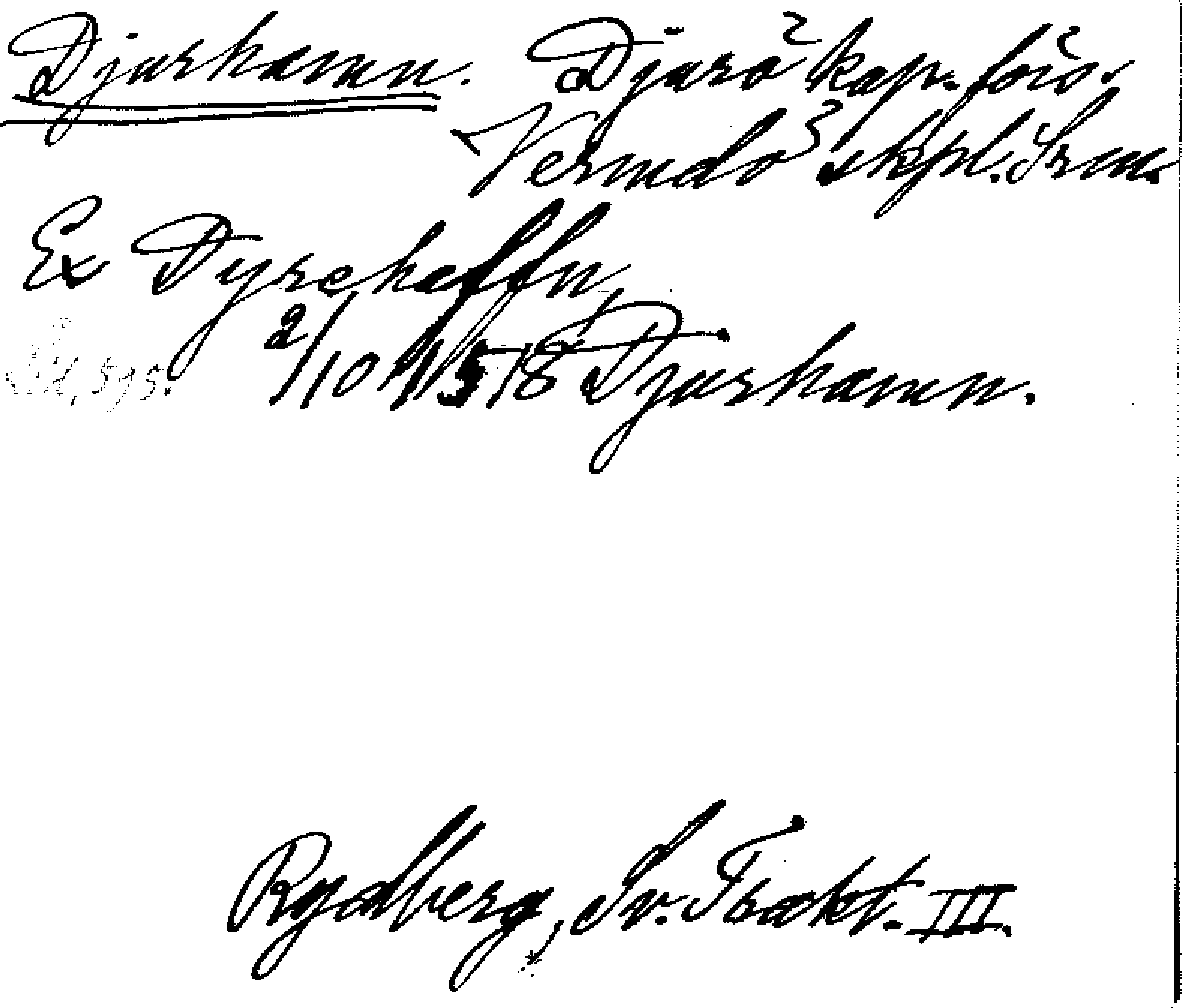 Djurhamn. Djurö kap.förs.
Vermdö skpl. Srm.
Ex Dyrehaffn,
2/10 1518 Djurhamn.
Rydberg, Sv. Trakt. III.